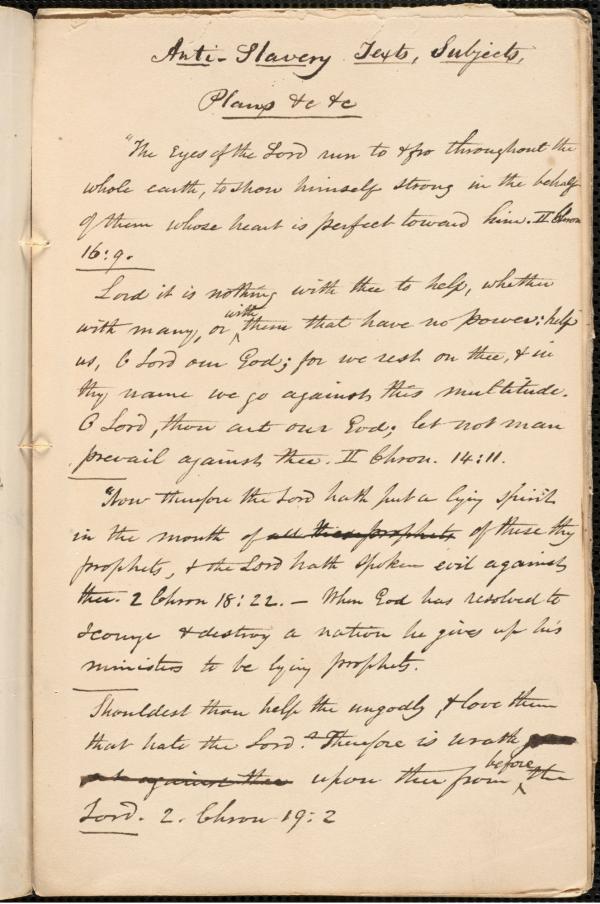 Anti-Slavery Texts, Subjects,
Plans &c &c
"The Eyes of the Lord run to & fro throughout the
whole earth, to show himself strong in the behalf
of them whose heart is perfect toward him. II Chron
16:9.
Lord it is nothing with thee to help, whether
with many, or with them that have no power: help
us, O Lord our God; for we rest on thee, & in
thy name we go against this multitude.
O Lord, thou art our God; let not man
prevail against thee. II Chron. 14:11.
"Now therefore the Lord hath put a lying spirit
in the mouth of all these prophets of these thy
prophets, & the Lord hath spoken evil against
thee. 2 Chron 18:22. — When God has resolved to
scourge & destroy a nation he gives up his
ministers to be lying prophets.
Shouldest thou help the ungodly, & love them
that hate the Lord? Therefore is wrath
against thee upon thee from before the
Lord. 2. Chron 19:2